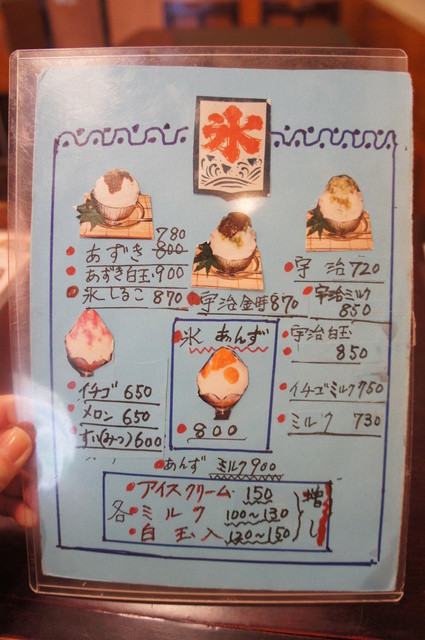 氷
780
あずき 800
あずき白玉 900
氷しるこ 870
宇治金時 870
宇治 720
宇治ミルク
850
宇治白玉
850
イチゴ 650
メロン 650
すい(みつ) 600
氷 あんず
800
イチゴミルク 750
ミルク 730
あんず ミルク 900
アイスクリーム 150
各 ミルク 100~130 増し
白玉入 130~150